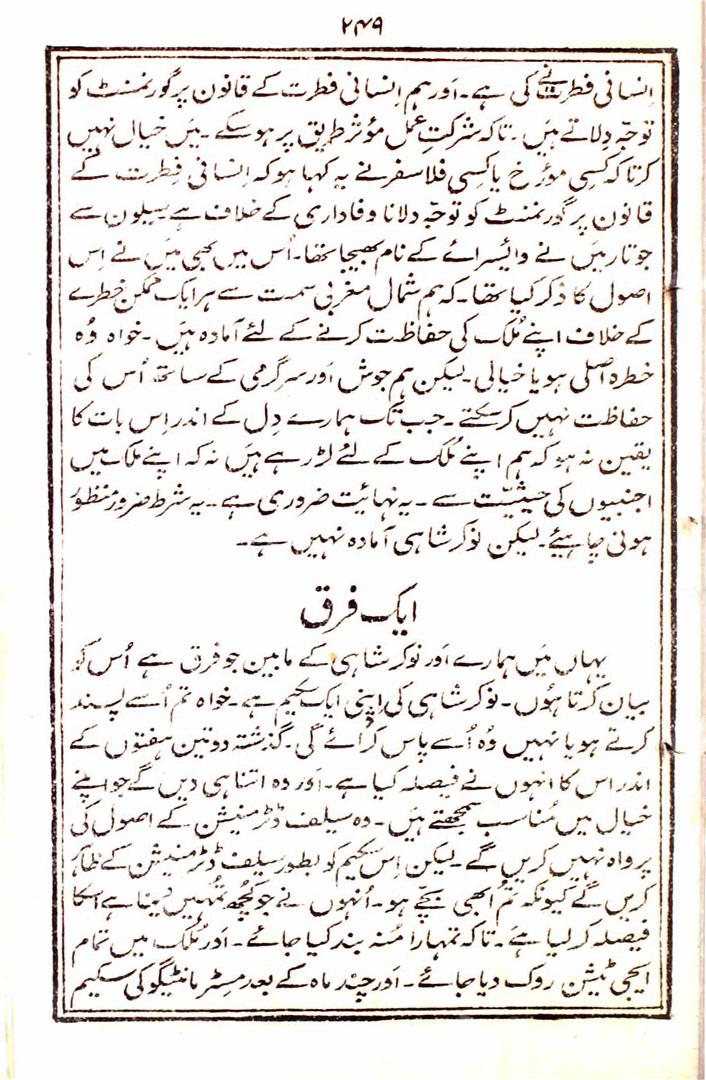 ۲۴۹
اِنسانی فطرت نے کی ہے۔ اَور ہم اِنسانی فطرت کے قانون پر گورنمنٹ کو
توجّہ دِلاتے ہَیں۔ تاکہ شرکتِ عمل مؤثر طریق پر ہو سکے۔ مَیں خیال نہیں
کرتا کہ کسی مورّخ یا کسی فلاسفر نے یہ کہا ہو کہ اِنسانی فِطرت کے
قانون پر گورنمنٹ کو توجّہ دلانا وفاداری کے خلاف ہے سیلون سے
جو تار میَں نے وائیسرائے کے نام بھیجا تھا۔ اُس میں بھی میَں نے اِس
اصول کا ذکر کیا تھا۔ کہ ہم شمال مغربی سمت سے ہر ایک ممکن خطرے
کے خلاف اپنے مُلک کی حفاظت کرنے کے لئے آمادہ ہیَں۔ خواہ وُہ
خطرہ اصلی ہو یا خیالی۔ لیکن ہم جوش اَور سرگرمی کے ساتھ اُس کی
حفاظت نہیں کر سکتے۔ جب تک ہمارے دِل کے اندر اِس بات کا
یقین نہ ہو کہ ہم اپنے مُلک کے لئے لڑ رہے ہیَں نہ کہ اپنے ملک میں
اجنبیوں کی حیثیّت سے۔ یہ نہائیت ضروری ہے۔ یہ شرط ضرور منظور
ہونی چاہیئے۔ لیکن نوکر شاہی آمادہ نہیں ہے۔
ایک فرق
یہاں میَں ہمارے اَور نوکر شاہی کے مابین جو فرق ہے اُس کو
بیان کرتا ہُوں۔ نوکر شاہی کی اپنی ایک سکیم ہے۔ خواہ تم اُسے پسند
کرتے ہو یا نہیں وُہ اُسے پاس کرائے گی۔ گذشتہ دو تین ہفتوں کے
اندر اس کا انہوں نے فیصلہ کیا ہے۔ اَور وہ اتنا ہی دیں گے جو اپنے
خیال میں مُناسب سمجھتے ہیَں۔ وہ سیلف ڈٹرمنیشن کے اصول کی
پرواہ نہیں کریں گے۔ لیکن اِس سکیم کو بطور سیلف ڈٹرمنیشن کے ظاہر
کریں گے کیونکہ تم ابھی بچّے ہو۔ اُنہوں نے جو کُچھ تُمہیں دینا ہے اسکا
فیصلہ کر لیا ہے۔ تاکہ تمہارا مُنہ بند کیا جائے۔ اَور مُلک میں تمام
ایجی ٹیشن روک دیا جائے۔ اَور چند ماہ کے بعد مسٹر مانٹیگو کی سکیم